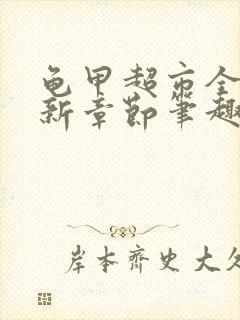 龟甲超市全
新章节笔趣
岸本齐史大久